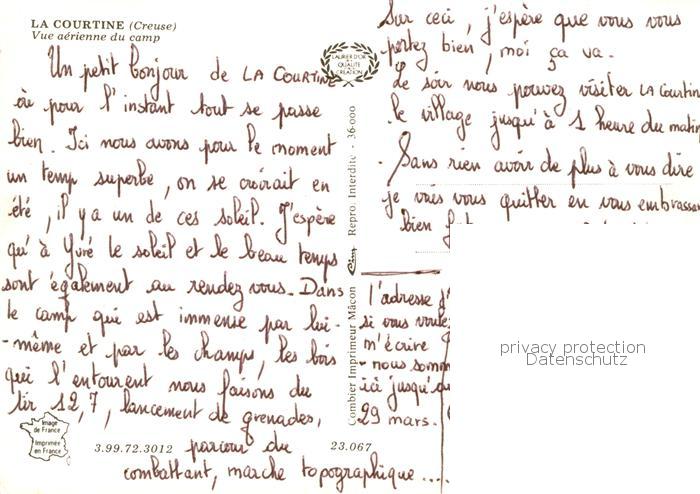 LA COURTINE (Creuse)
Vue aérienne du camp
Un petit bonjour de LA COURTINE
où pour l'instant tout se passe
bien. Ici nous avons pour le moment
un temp superbe, on se croirait en
été, il y a un de ces soleil. J'espère
qu'à Yvré le soleil et le beau temps
sont également au rendez vous. Dans
le camp qui est immense par lui-
-même et par les champs, les bois
qui l'entourent nous faisons du
tir 12,7, lancement de grenades,
parcour du
combattant, marche topographique....
LAURIER D'OR
QUALITE
CREATION
Combier Imprimeur Mâcon Cim Repro. Interdite - 36-000
Image
de France
Imprimée
en France
3.99.72.3012
23.067
Sur ceci, j'espère que vous vous
portez bien, moi ça va.
Le soir nous pouvez visiter LA Courtin
le village jusqu'à 1 heure du matin
Sans rien avoir de plus à vous dire
je vais vous quitter en vous embrassan
bien
l'adresse
si vous voulez
m'écrire
- nous somm
ici jusqu'au
29 mars.
privacy protection
Datenschutz